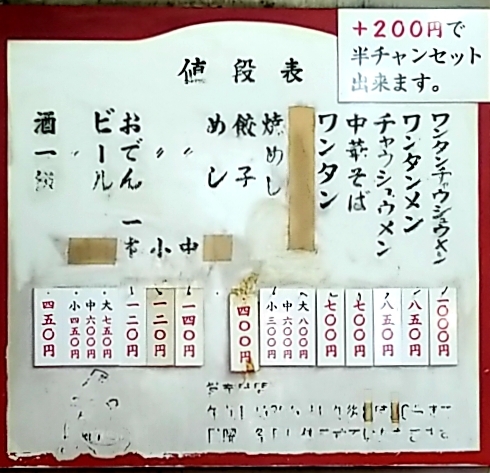 +200円で
半チャンセット
出来ます。
値段表
ワンタンチャウシュウメン 一〇〇〇円
ワンタンメン 八五〇円
チャウシュウメン 八五〇円
中華そば 七〇〇円
ワンタン 七〇〇円
焼めし 大八〇〇円
中六〇〇円
小三〇〇円
餃子 四〇〇円
めし
〃 中 一四〇円
〃 小 一二〇円
おでん 一本 一二〇円
ビール 大七五〇円
〃 中六〇〇円
小四五〇円
酒一級 四五〇円